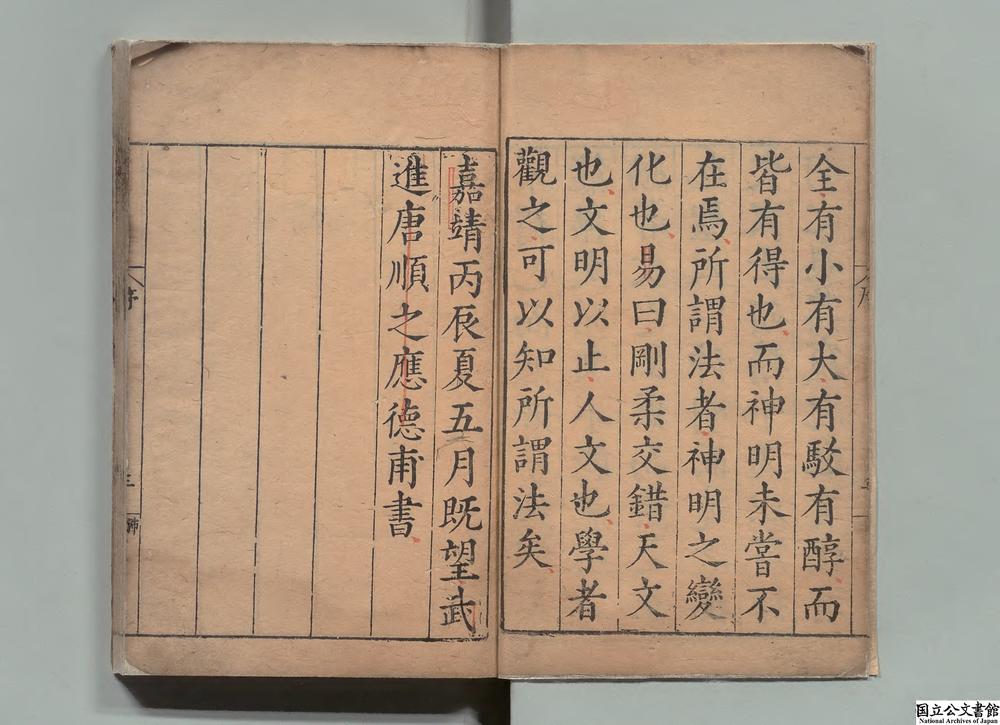 全有小有大有駁有醇而
皆有得也而神明未嘗不
在焉所謂法者神明之變
化也易曰剛柔交錯天文
也文明以止人文也學者
觀之可以知所謂法矣
嘉靖丙辰夏五月既望武
進唐順之應德甫書
序
三
国立公文書館
National Archives of Japan